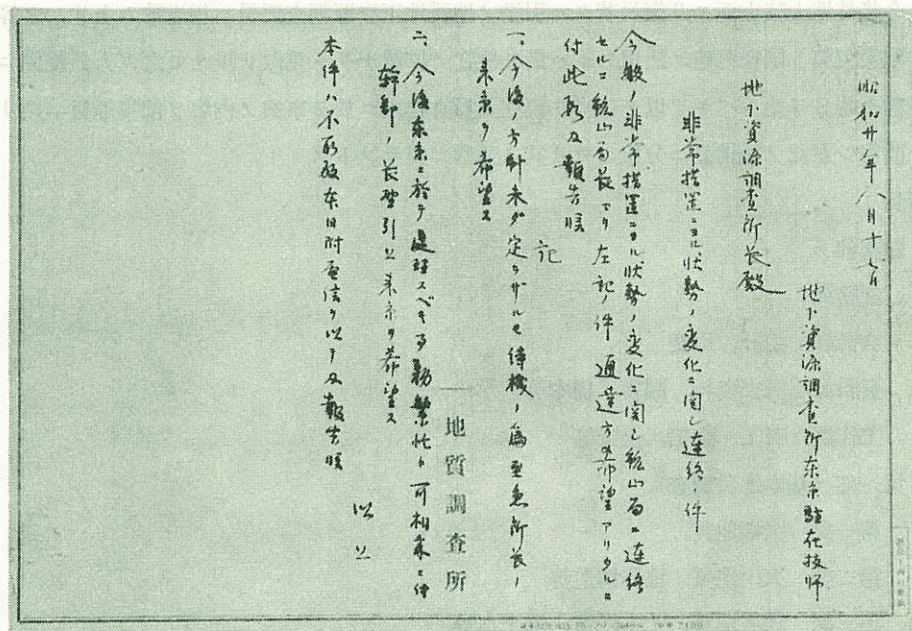 昭和廿年八月十七日
地下資源調査所東京駐在技師
地下資源調査所長殿
非常措置ニヨル状勢ノ変化ニ関シ連絡ノ件
今般ノ非常措置ニヨル状勢ノ変化ニ関シ鉱山局ニ連絡
セルニ鉱山局長ヨリ左記ノ件通達方ヲ希望アリタルニ
付此段及報告候
記
一、今後ノ方針未ダ定ラザルモ待機ノ為至急所長ノ
来京ヲ希望ス
二、今後東京ニ於テ処理スベキ事務繁忙ト可相成ニ付
幹部ノ長野引上来京ヲ希望ス
本件ハ不取敢本日附電信ヲ以テ及報告候
以上
地質調査所